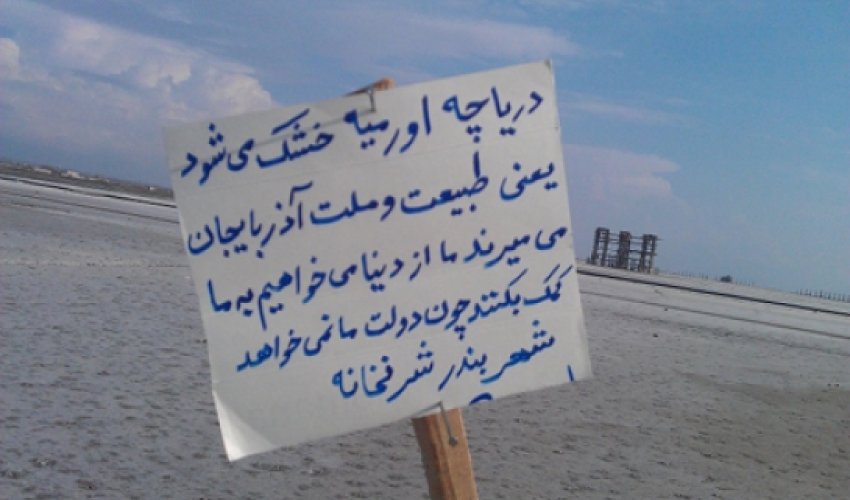 دریاچه اورمیه خشک می شود
یعنی طبیعت و ملت آذربایجان
می میرند ما از دنیا می خواهیم به ما
کمک بکنند چون دولت ما نمی خواهد
شهر بندر شرفخانه